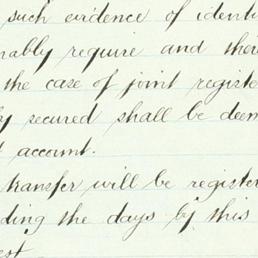 such evidence of identi
nably require and the
the case of joint registe
y secured shall be deem
t account.
transfer will be register
ding the days by this
est